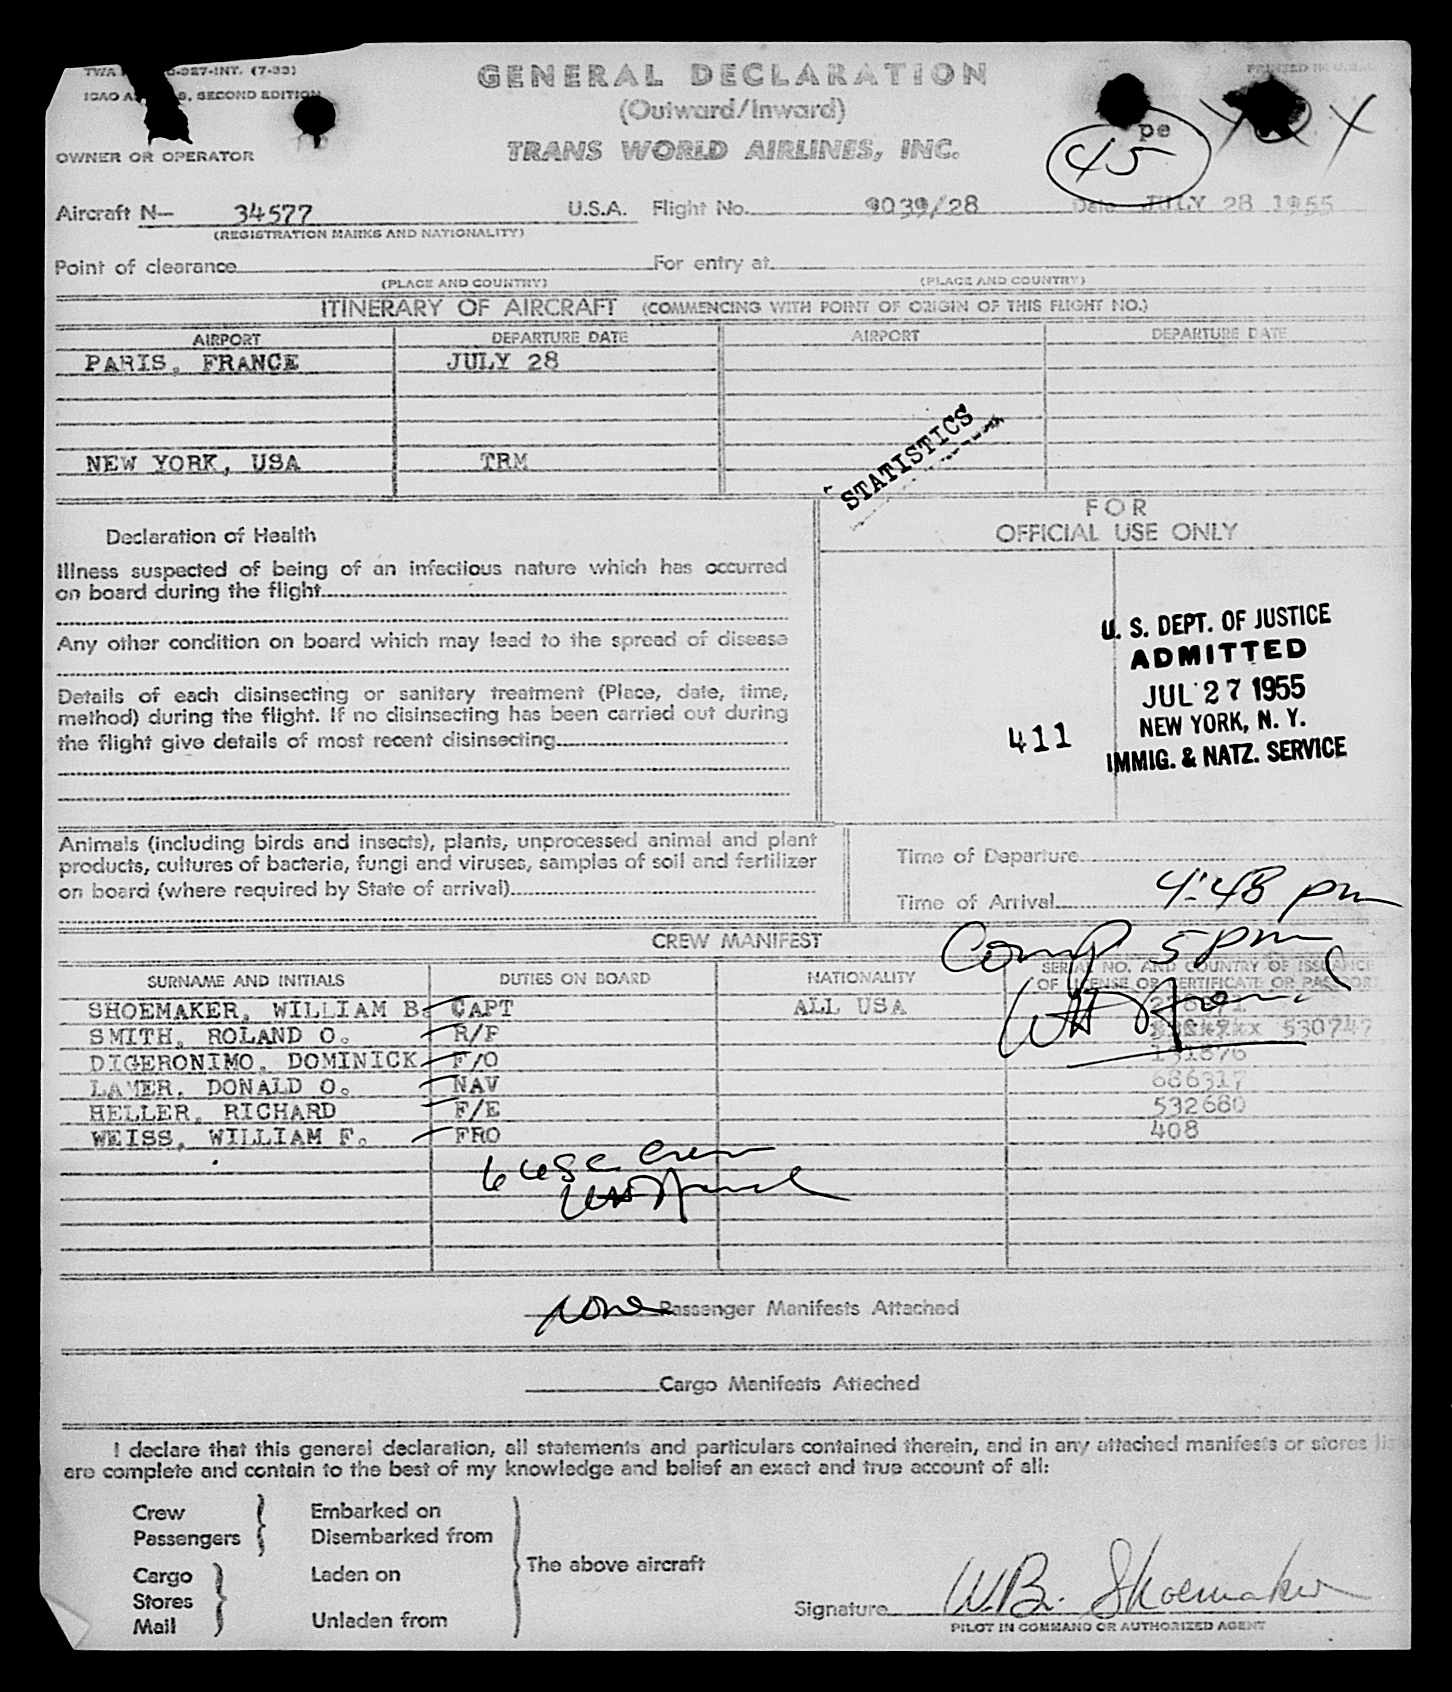 TWA 327-INT. (7-53)
ICAO SECOND EDITION
OWNER OR OPERATOR
GENERAL DECLARATION
(Outward/Inward)
TRANS WORLD AIRLINES, INC.
PRINTED IN U.S.A.
pe
45
Aircraft N— 34577 U.S.A. Flight No. 9039/28 Date JULY 28 1955
(REGISTRATION MARKS AND NATIONALITY)
Point of clearance For entry at
(PLACE AND COUNTRY) (PLACE AND COUNTRY)
ITINERARY OF AIRCRAFT (COMMENCING WITH POINT OF ORIGIN OF THIS FLIGHT NO.)
AIRPORT DEPARTURE DATE AIRPORT DEPARTURE DATE
PARIS, FRANCE JULY 28
NEW YORK, USA TRM
STATISTICS
FOR
OFFICIAL USE ONLY
Declaration of Health
Illness suspected of being of an infectious nature which has occurred
on board during the flight
Any other condition on board which may lead to the spread of disease
Details of each disinsecting or sanitary treatment (Place, date, time,
method) during the flight. If no disinsecting has been carried out during
the flight give details of most recent disinsecting
411
U. S. DEPT. OF JUSTICE
ADMITTED
JUL 27 1955
NEW YORK, N. Y.
IMMIG. & NATZ. SERVICE
Animals (including birds and insects), plants, unprocessed animal and plant
products, cultures of bacteria, fungi and viruses, samples of soil and fertilizer
on board (where required by State of arrival)
Time of Departure
Time of Arrival 4:48 pm
Comp 5 pm
CREW MANIFEST
SURNAME AND INITIALS DUTIES ON BOARD NATIONALITY SERIAL NO. AND COUNTRY OF ISSUANCE
OF LICENSE OR CERTIFICATE OR PASSPORT
SHOEMAKER, WILLIAM B. CAPT ALL USA
SMITH, ROLAND O. R/F 530747
DIGERONIMO, DOMINICK F/O 131876
LAMER, DONALD O. NAV 686317
HELLER, RICHARD F/E 532680
WEISS, WILLIAM F. FRO 408
6 USC Crew
None Passenger Manifests Attached
Cargo Manifests Attached
I declare that this general declaration, all statements and particulars contained therein, and in any attached manifests or stores
are complete and contain to the best of my knowledge and belief an exact and true account of all:
Crew Embarked on
Passengers Disembarked from
The above aircraft
Cargo Laden on
Stores
Mail Unladen from
Signature W.B. Shoemaker
PILOT IN COMMAND OR AUTHORIZED AGENT